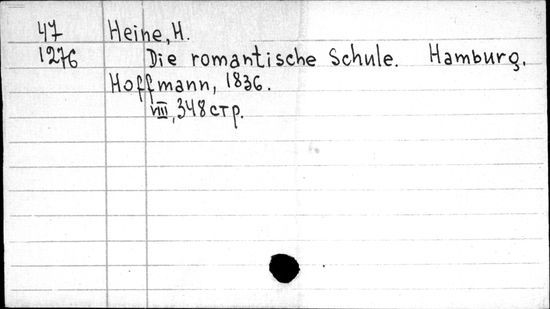 47 Heine, H.
1276 Die romantische Schule. Hamburg.
Hoffmann, 1836.
VIII, 348 стр.